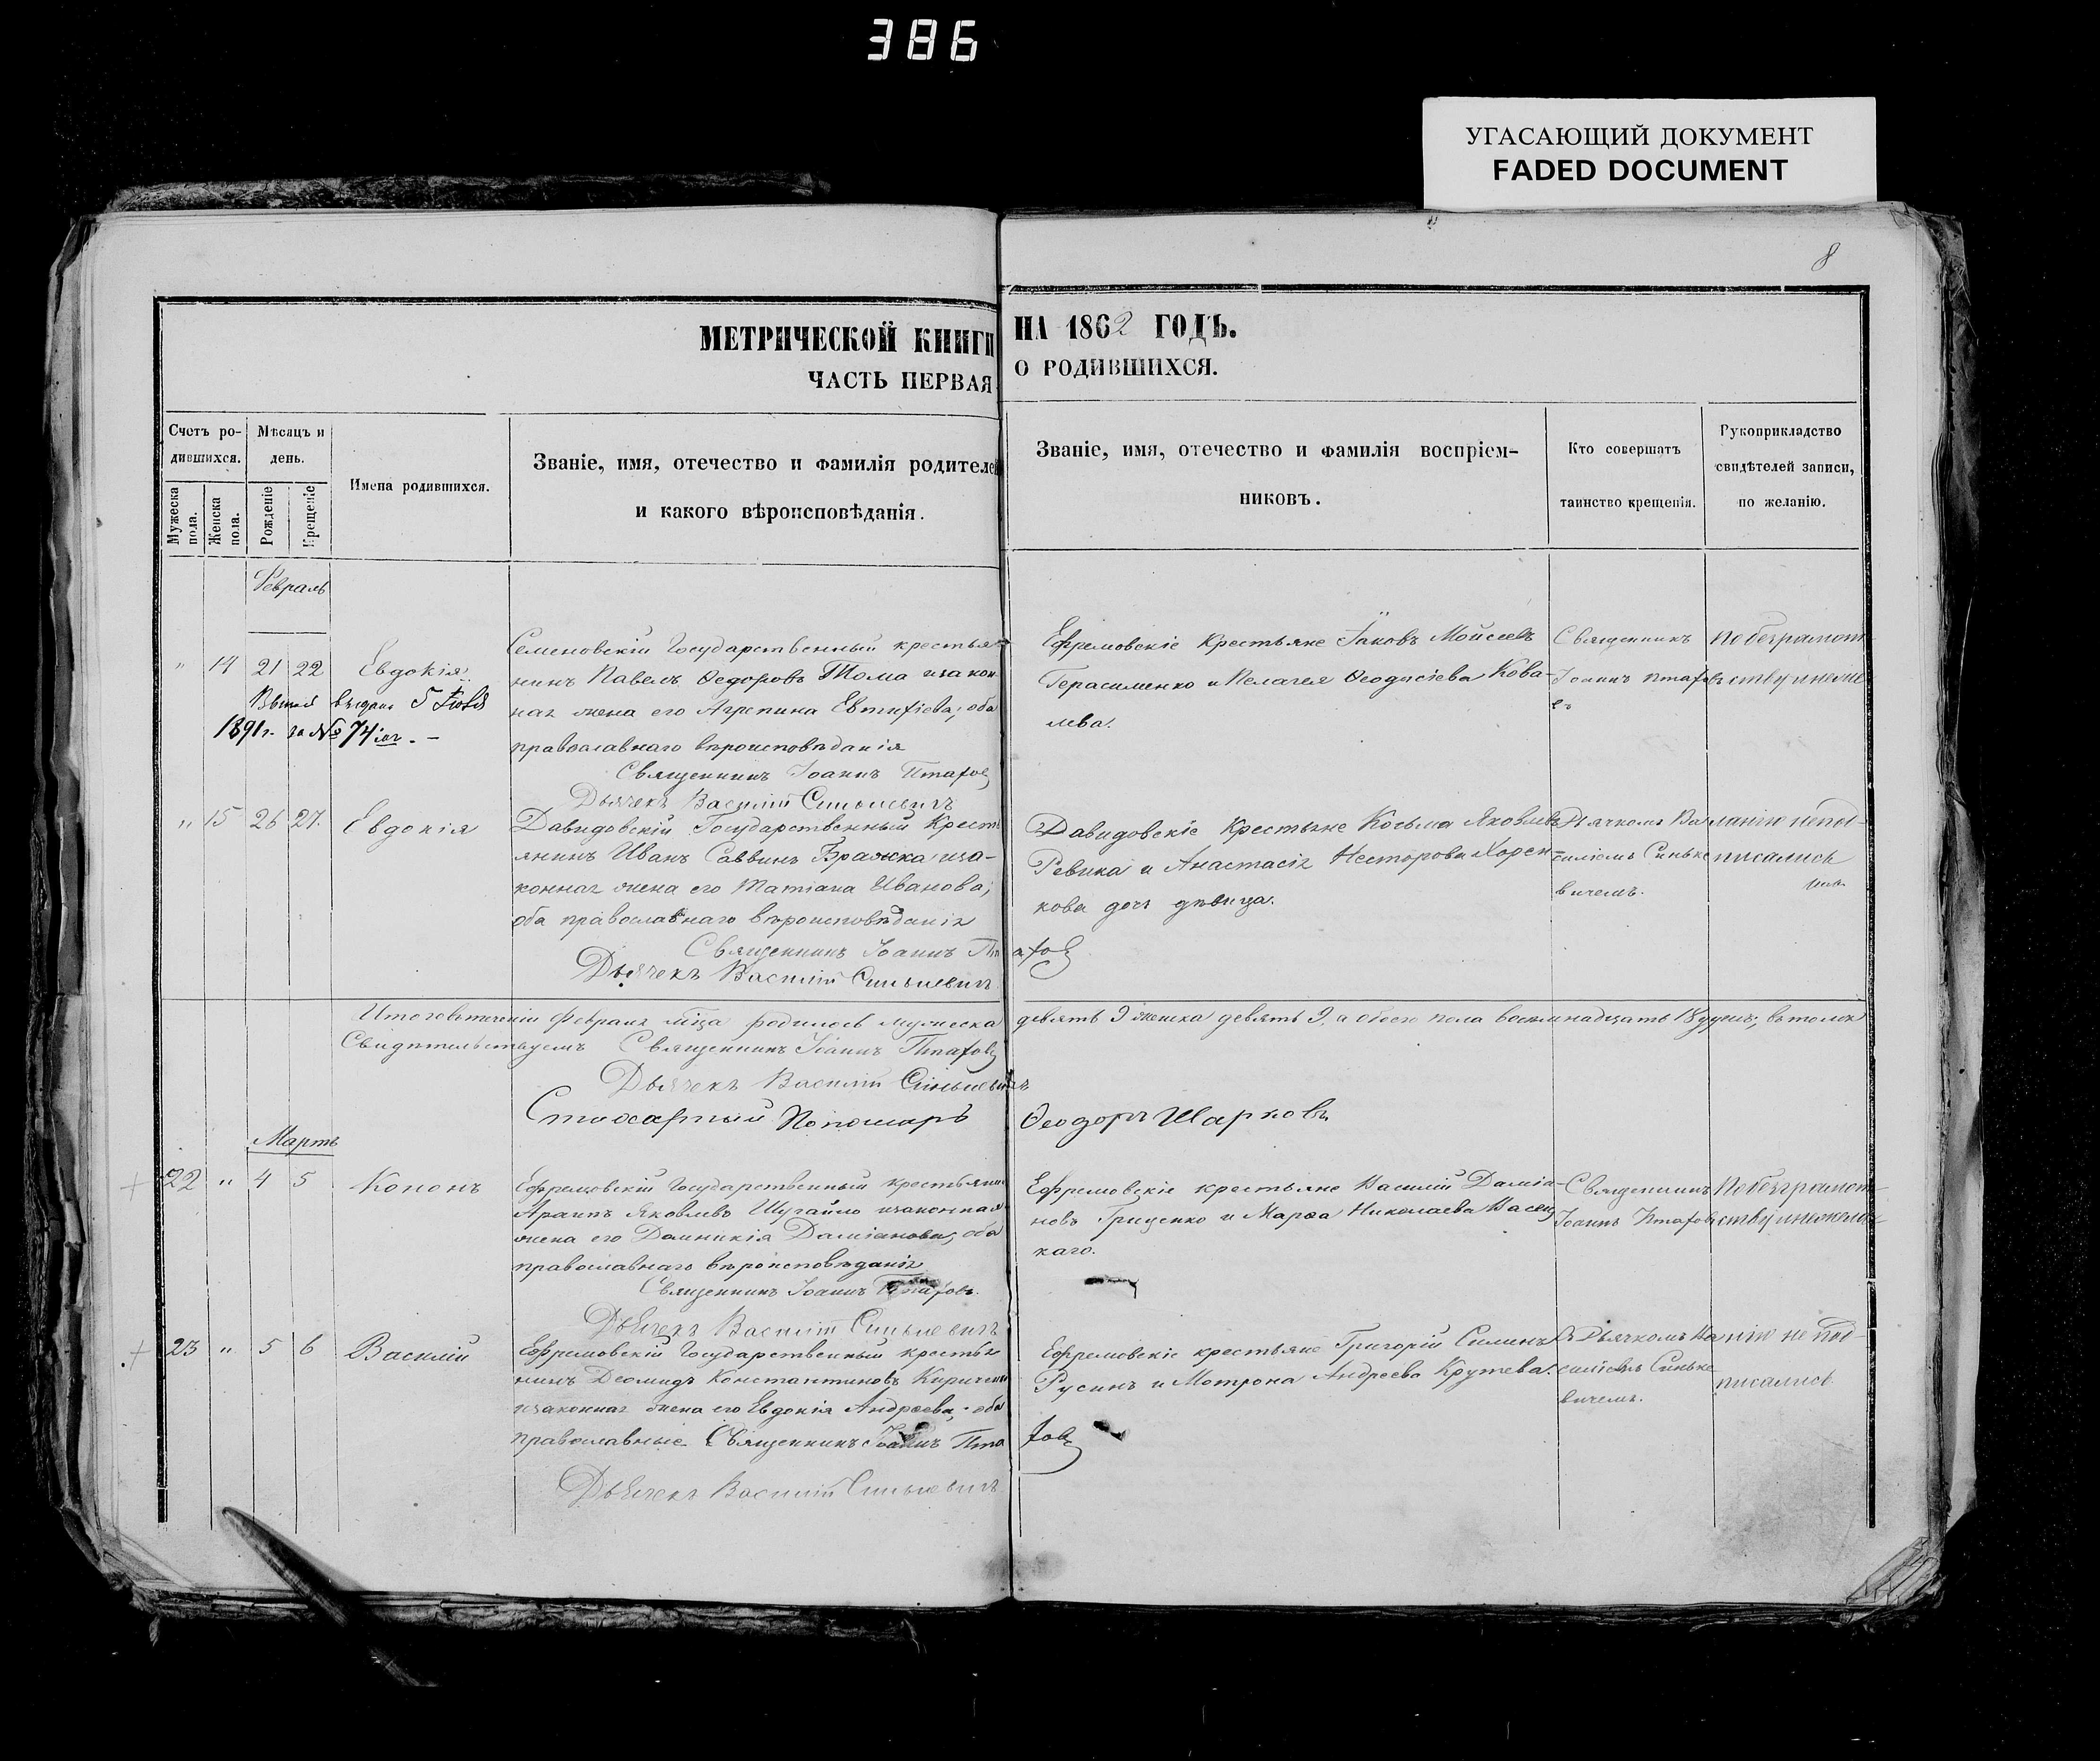 386
УГАСАЮЩИЙ ДОКУМЕНТ
FADED DOCUMENT
8
МЕТРИЧЕСКОЙ КНИГИ НА 1862 ГОДЪ.
ЧАСТЬ ПЕРВАЯ О РОДИВШИХСЯ.
Счетъ ро-
дившихся.
Мужеска пола.
Женска пола.
Мѣсяцъ и
день.
Рожденіе
Крещеніе
Имена родившихся.
Званіе, имя, отечество и фамилія родителей
и какого вѣроисповѣданія.
Званіе, имя, отечество и фамилія воспріем-
никовъ.
Кто совершатъ
таинство крещенія.
Рукоприкладство
свидѣтелей записи,
по желанію.
Февраль
" 14 21 22 Евдокія
1891 г. за № 74
Семеновскій Государственный крестья-
нинъ Павелъ Ѳедоровъ Тома изакон
ная жена его Агрепина Евтифіева; оба
православнаго вѣроисповѣданія
Священникъ Іоаннъ
Дьячекъ Василій Синькевичъ
Ефремовскіе Крестьяне Іаковъ Мойсеевъ
Герасименко и Пелагея Ѳеодосіева Кова-
лева.
Священникъ
Іоаннъ
По безграмот-
ству и
" 15 26 27 Евдокія
Давидовскій Государственный Кресть
янинъ Иванъ Саввинъ Бражка иза-
конная жена его Татіана Иванова;
оба православнаго вѣроисповѣданія
Священникъ Іоаннъ
Дьячекъ Василій Синькевичъ
Давидовскіе Крестьяне Косьма Яковлевъ
Ревика и Анастасія Несторова Хорен-
кова дочь дѣвица.
Дьячкомъ Ва
силіемъ Синьке
вичемъ.
ланію непод-
писались
Итого втеченіи Февраля мца родилось мужеска девять 9 женска девять 9, а обоего пола восемнадцать 18 душъ; въ томъ
Свидѣтельствуемъ Священникъ Іоаннъ
Дьячекъ Василій Синькевичъ
Стихарный Пономарь Ѳеодоръ Шарковъ
Мартъ
22 " 4 5 Кононъ
Ефремовскій Государственный крестьянин
Яковлевъ Шугайло изаконная
жена его Домникія Даміанова, оба
православнаго вѣроисповѣданія
Священникъ Іоаннъ
Дьячекъ Василій Синькевичъ
Ефремовскіе крестьяне Василій Даміа-
новъ Гриценко и Марѳа Николаева
каго.
Священникъ
Іоаннъ
По безграмот-
ству и нежела-
23 " 5 6 Василій
Ефремовскій Государственный крестья
нинъ Деомидъ Константиновъ Киричен
изаконная жена его Евдокія Андреева; оба
православные. Священникъ Іоаннъ
Дьячекъ Василій Синькевичъ
Ефремовскіе крестьяне Григорій Симинъ
Русинъ и Мотрона Андреева Крутева.
Дьячкомъ Ва
силіемъ Синьке
вичемъ.
нію не под-
писались